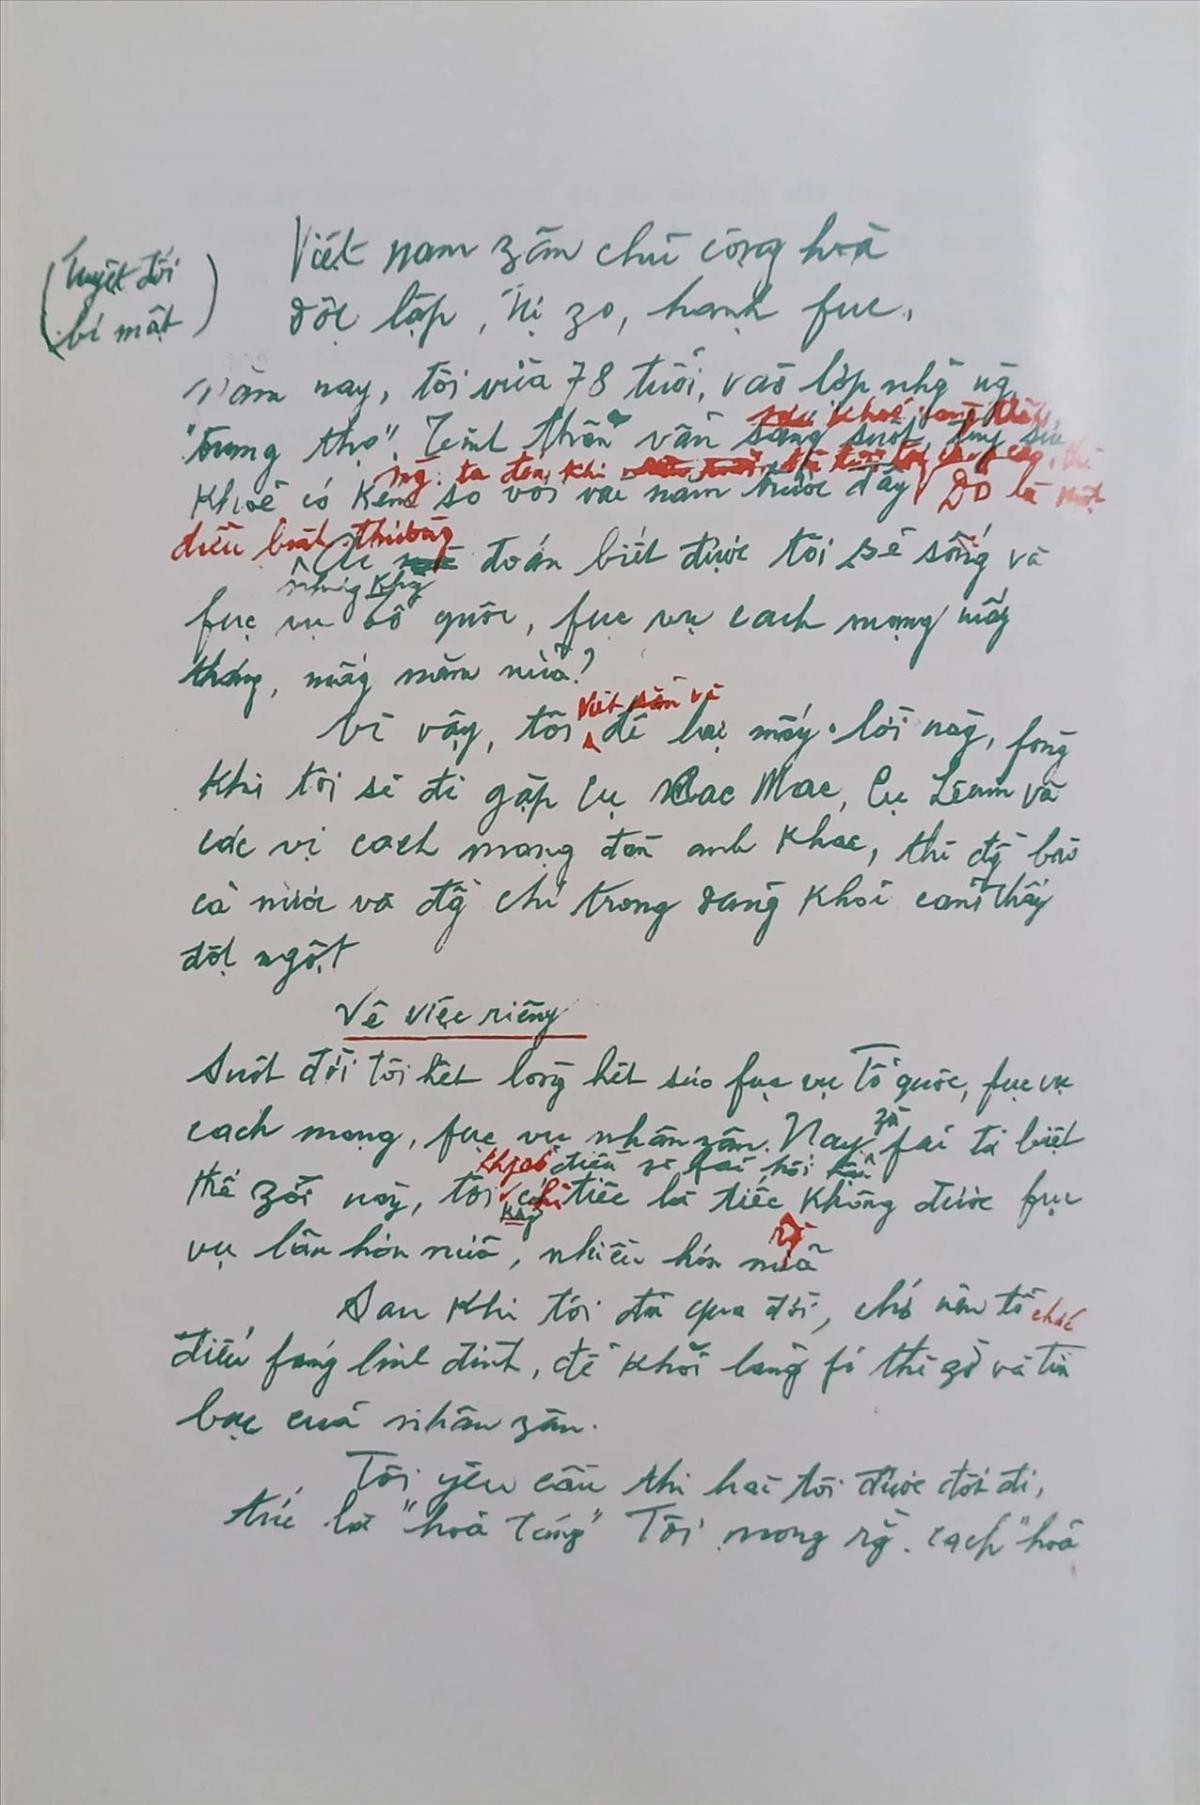 (tuyệt đối
bí mật)
Việt nam zân chủ cộng hoà
độc lập, tự zo, hạnh fuc,
Năm nay, tôi vừa 78 tuổi, vào lớp nhữ ng
"trung thọ". Tinh thần vẫn sáng suốt, tuy sức
ng: ta đến khi
khoẻ có kém so với vài năm trước đây. Đó là một
điều bình thường
Ai đoán biết được tôi sẽ sống và
nhưng không
fục vụ tổ quốc, fục vụ cách mạng mấy
tháng, mấy năm nữa?
viết sẵn và
Vì vậy, tôi để lại mấy lời này, fòng
khi tôi sẽ đi gặp cụ Các Mác, cụ Lênin và
các vị cách mạng đàn anh khác, thì đồng bào
cả nước và đồng chí trong đảng khỏi cảm thấy
đột ngột
Về việc riêng
Suốt đời tôi hết lòng hết sức fục vụ Tổ quốc, fục vụ
cách mạng, fục vụ nhân zân. Nay zù fải từ biệt
không có điều gì fải hối hận
thế zới này, tôi chỉ tiếc là tiếc không được fục
vụ lâu hơn nữa, nhiều hơn nữa
Sau khi tôi đã qua đời, chớ nên tổ chức
điếu fúng linh đình, để khỏi lãng fí thì zờ và tiền
bạc của nhân zân.
Tôi yêu cầu thi hài tôi được đốt đi,
tức là "hoả táng" Tôi mong rằ. cách "hoả